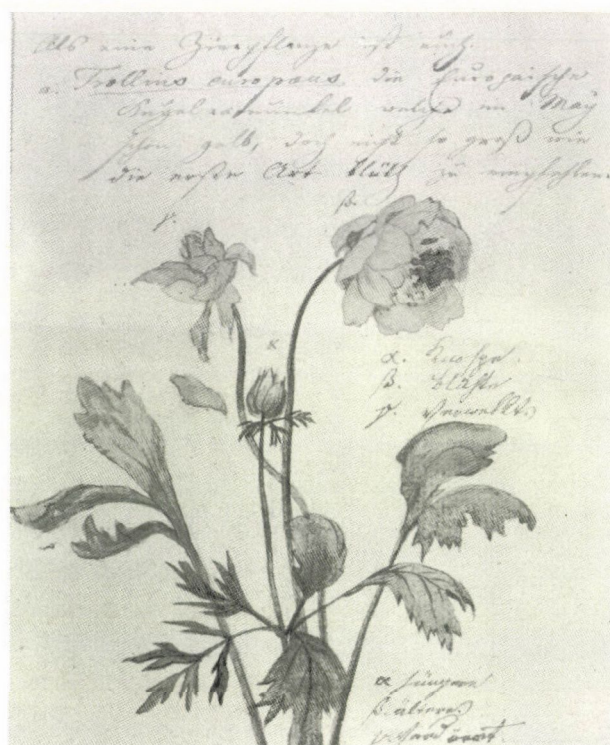 Als eine Zierpflanze ist auch
a. Trollius europaeus, die Europäische
Kugelranunkel welche im May
schon gelb, doch nicht so groß wie
die erste Art blüht zu empfehlen
γ.
β.
α
α. Knospe.
β. Blüthe
γ. Verwelkt.
α jüngere
β. ältere